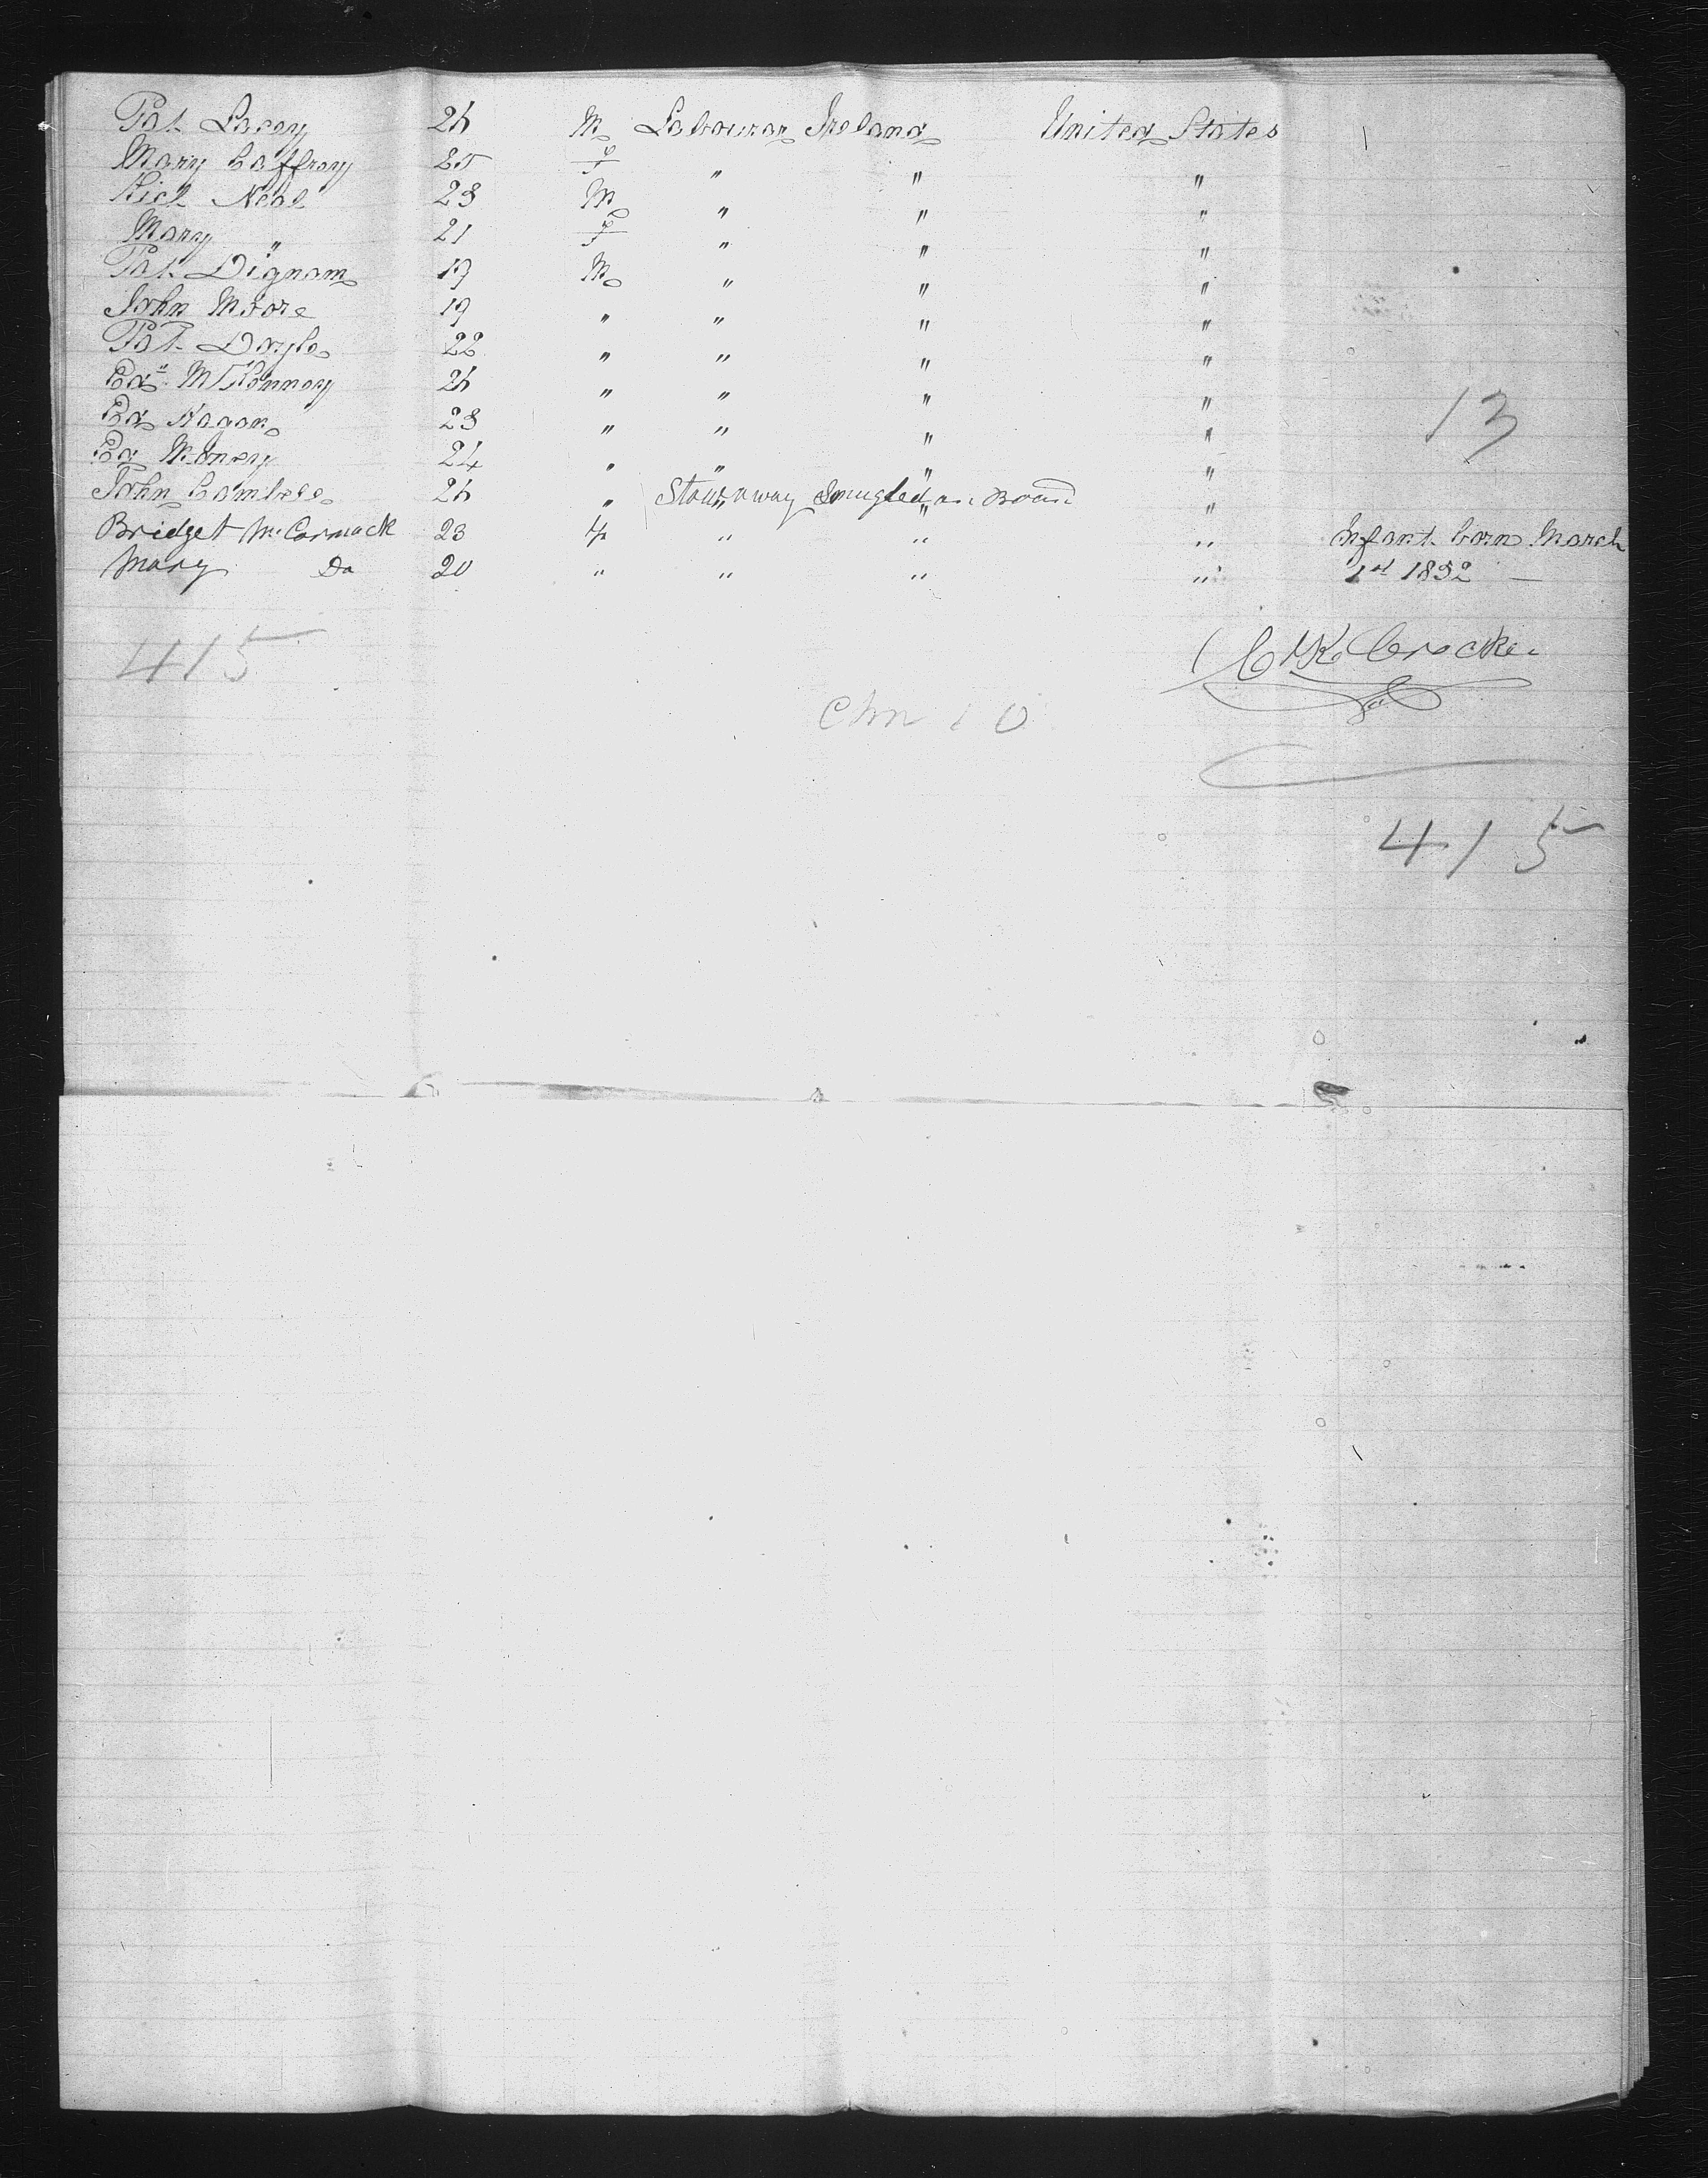 Pat Lacey 26 M Labourer Ireland United States
Mary Caffrey 25 F " " "
Rich Neal 28 M " " "
Mary " 21 F " " "
Pat Dignam 19 M " " "
John Moore 19 " " " "
Pat Doyle 22 " " " "
Ed" McKenney 26 " " " "
Ed Hagan 28 " " " "
Ed 24 " " " "
John 26 " Stowaway Smugled on Board "
Bridget McCormack 23 F " " " Infant born March
Mary Do 20 " " " " 1st 1852 —
13
415
Crocker
Chn 10
415